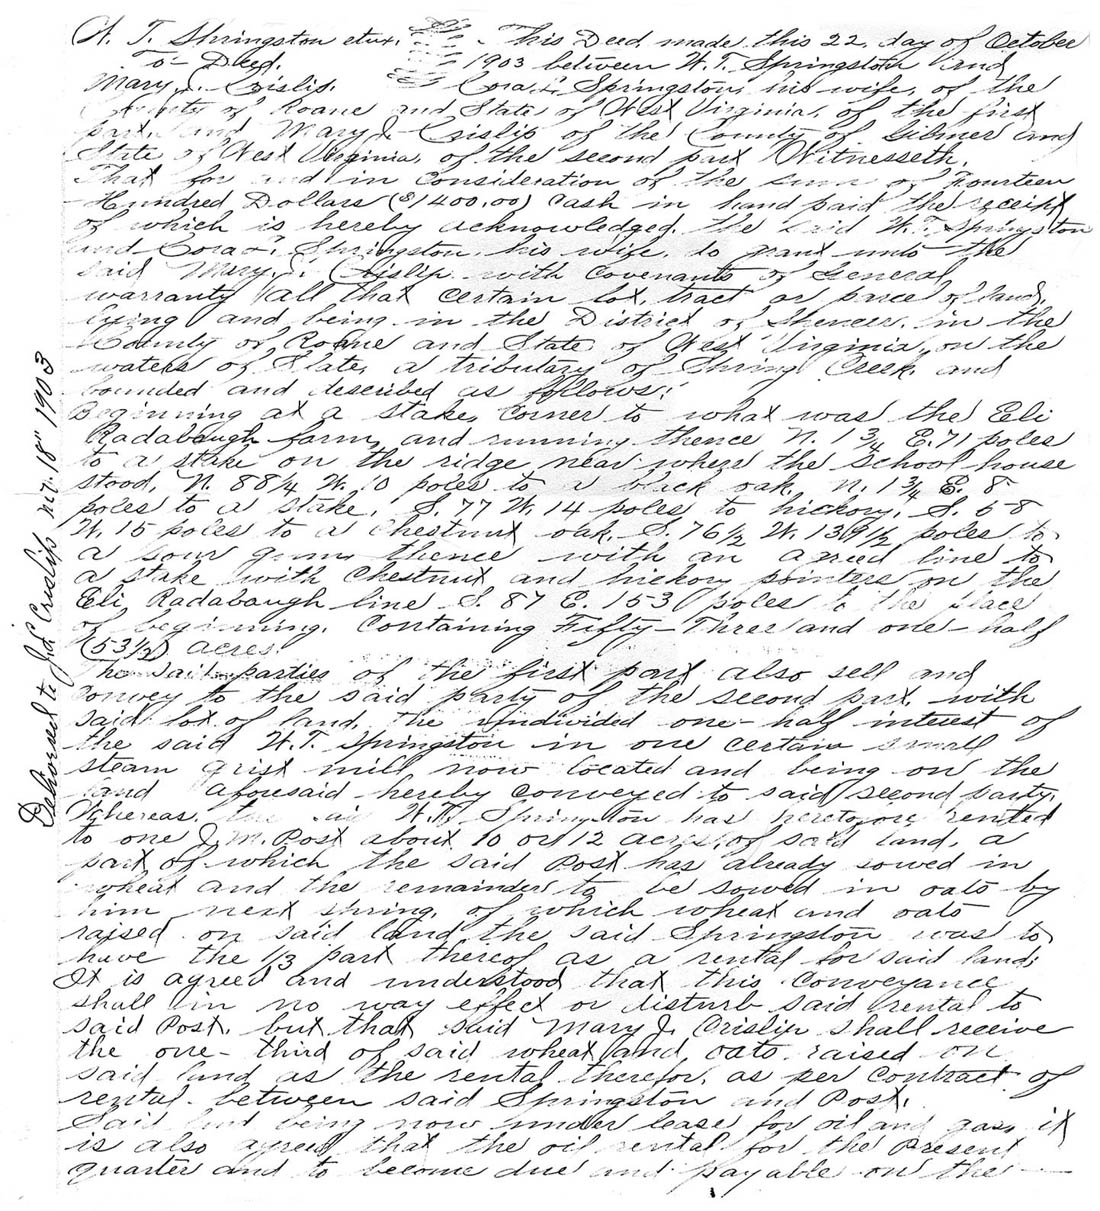 W. T. Springston etux. This Deed made this 22. day of October
To - Deed. 1903 between W. T. Springston and
Mary J. Crislip. Cora L. Springston, his wife, of the
County of Roane and State of West Virginia, of the first
part, and Mary J. Crislip of the County of Gilmer and
State of West Virginia, of the second part Witnesseth,
That for and in consideration of the sum of Fourteen
Hundred Dollars ($1400.00) cash in hand paid the receipt
of which is hereby acknowledged, the said W. T. Springston
and Cora L. Springston, his wife, do grant unto the
said Mary J. Crislip with covenants of General
warranty all that certain lot, tract or parcel of land,
lying and being in the District of Spencer, in the
County of Roane and State of West Virginia, on the
waters of Slate, a tributary of Spring Creek, and
bounded and described as follows:
Beginning at a stake, corner to what was the Eli
Radabaugh farm, and running thence N. 1 3/4 E. 71 poles
to a stake on the ridge near where the School house
stood, N. 88 1/4 W. 10 poles to a black oak, N. 1 3/4 E. 8
poles to a stake, S. 77 W. 14 poles to hickory, S. 58
W. 15 poles to a Chestnut oak, S. 76 1/2 W. 139 1/2 poles to
a sour gum thence with an agreed line to
a stake with Chestnut and hickory pointers on the
Eli Radabaugh line S. 87 E. 153 poles to the place
of beginning. Containing Fifty-Three and one-half
(53 1/2) acres.
The said parties of the first part also sell and
convey to the said party of the second part, with
said lot of land, the undivided one-half interest of
the said W. T. Springston in one certain small
steam grist mill now located and being on the
land aforesaid hereby conveyed to said second party.
Whereas, the said W. T. Springston has heretofore rented
to one J. M. Post about 10 or 12 acres, of said land, a
part of which the said Post has already sowed in
wheat and the remainder to be sowed in oats by
him next spring, of which wheat and oats
raised on said land the said Springston was to
have the 1/3 part thereof as a rental for said land;
It is agreed and understood that this conveyance
shall in no way effect or disturb said rental to
said Post, but that said Mary J. Crislip shall receive
the one-third of said wheat and oats raised on
said land as the rental therefor, as per contract of
rental between said Springston and Post.
Said land being now under lease for oil and gas, it
is also agreed that the oil rental for the present
quarter and to become due and payable on the
Delivered to J. L. Crislip 18" 1903